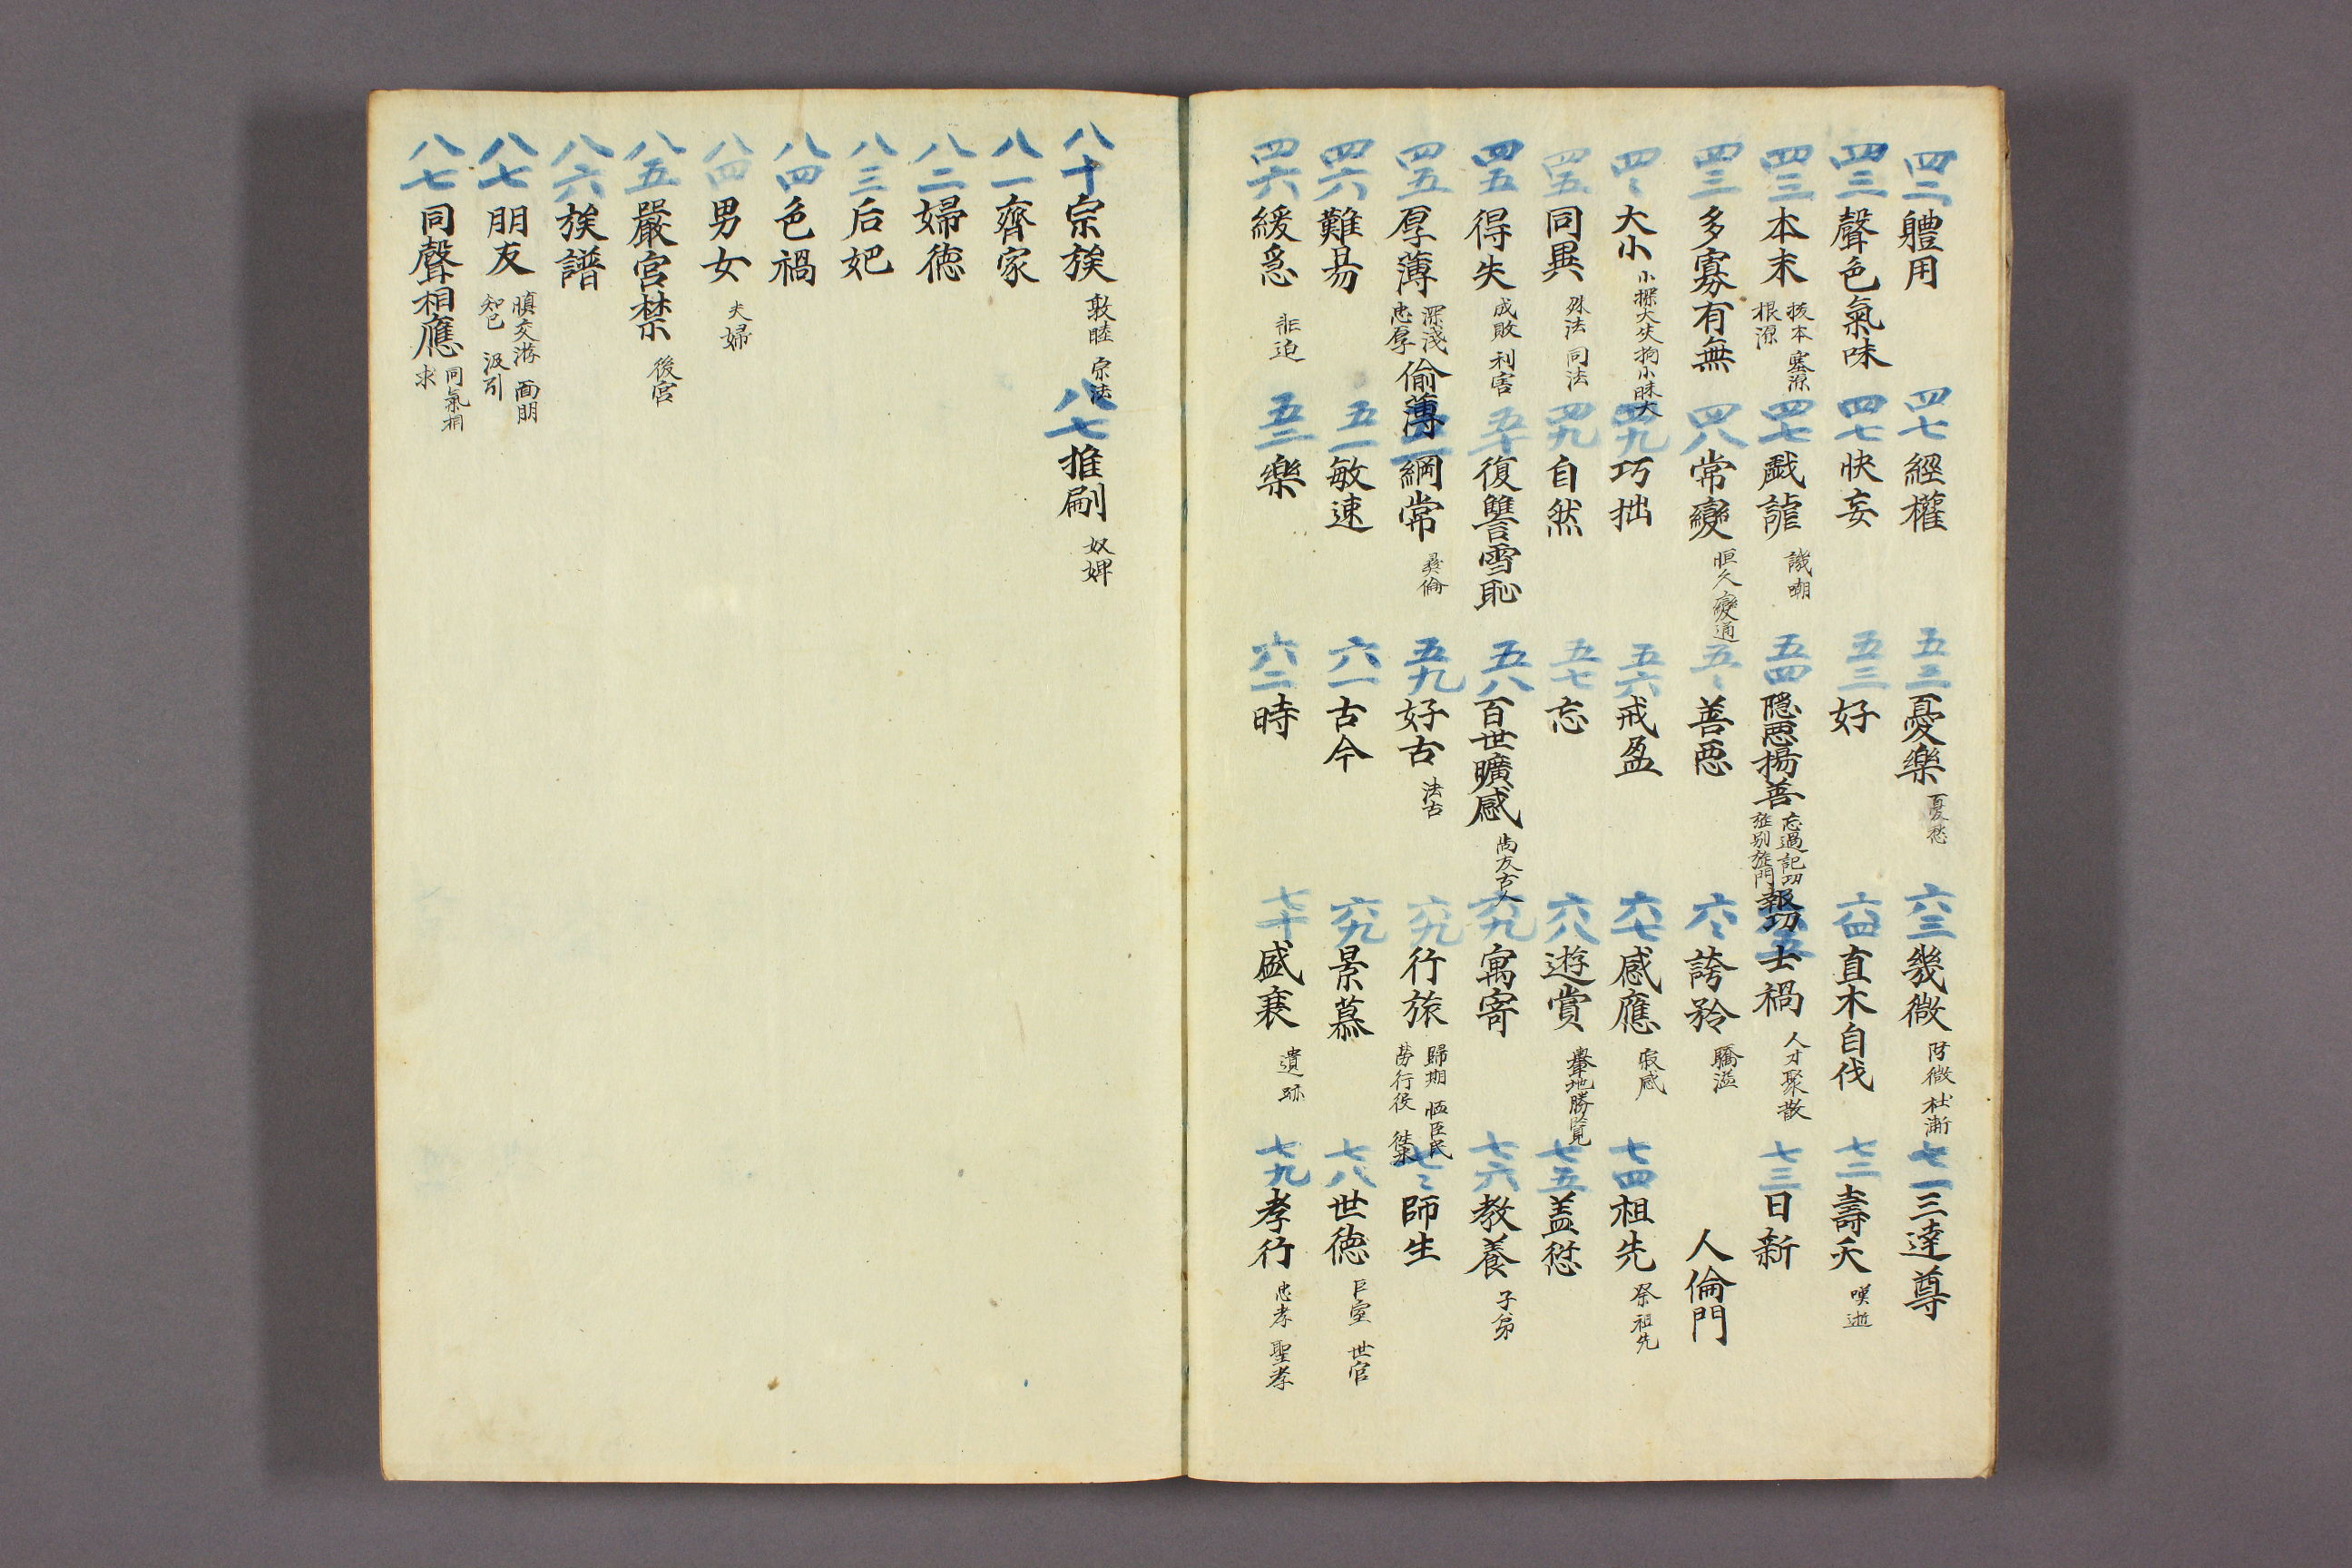 四二 軆用
四三 聲色氣味
四三 本末 拔本 塞源 根源
四三 多寡有無
四〻 大小
四五 同異 殊法 同法
四五 得失 成敗 利害
四五 厚薄 深淺 忠厚 偷薄
四六 難易
四六 緩急
四七 經權
四七 快妄
四七 戱謔 譏嘲
四八 常變 恒久 變通
四九 巧拙
四九 自然
五十 復讐雪恥
綱常 彛倫
五一 敏速
五二 樂
五三 憂樂 憂愁
五三 好
五四 隱惡揚善 忘過記功 旌別旌門 報功
五〻 善惡
五六 戒盈
五七 忘
五八 百世曠感 尚友古人
五九 好古 法古
六一 古今
六二 時
六三 幾微 防微 杜漸
六四 直木自伐
六五 士禍 人才聚散
六〻 誇矜 驕溢
六七 感應 寂感
六八 遊賞 勝覽
六九 寓寄
六九 行旅 歸期 勞行役
六九 景慕
七十 盛衰 遺跡
七一 三達尊
七二 壽夭 嘆逝
七三 日新
人倫門
七四 祖先 祭祖先
七五 盖愆
七六 教養 子弟
七〻 師生
七八 世德 巨室 世官
七九 孝行 忠孝 聖孝
八十 宗族 敦睦 宗法
八一 齊家
八二 婦德
八三 后妃
八四 色禍
八四 男女 夫婦
八五 嚴宮禁 後宮
八六 族譜
八七 朋友 愼交游 面朋 知己 汲引
八七 同聲相應 同氣相求
八七 推刷 奴婢